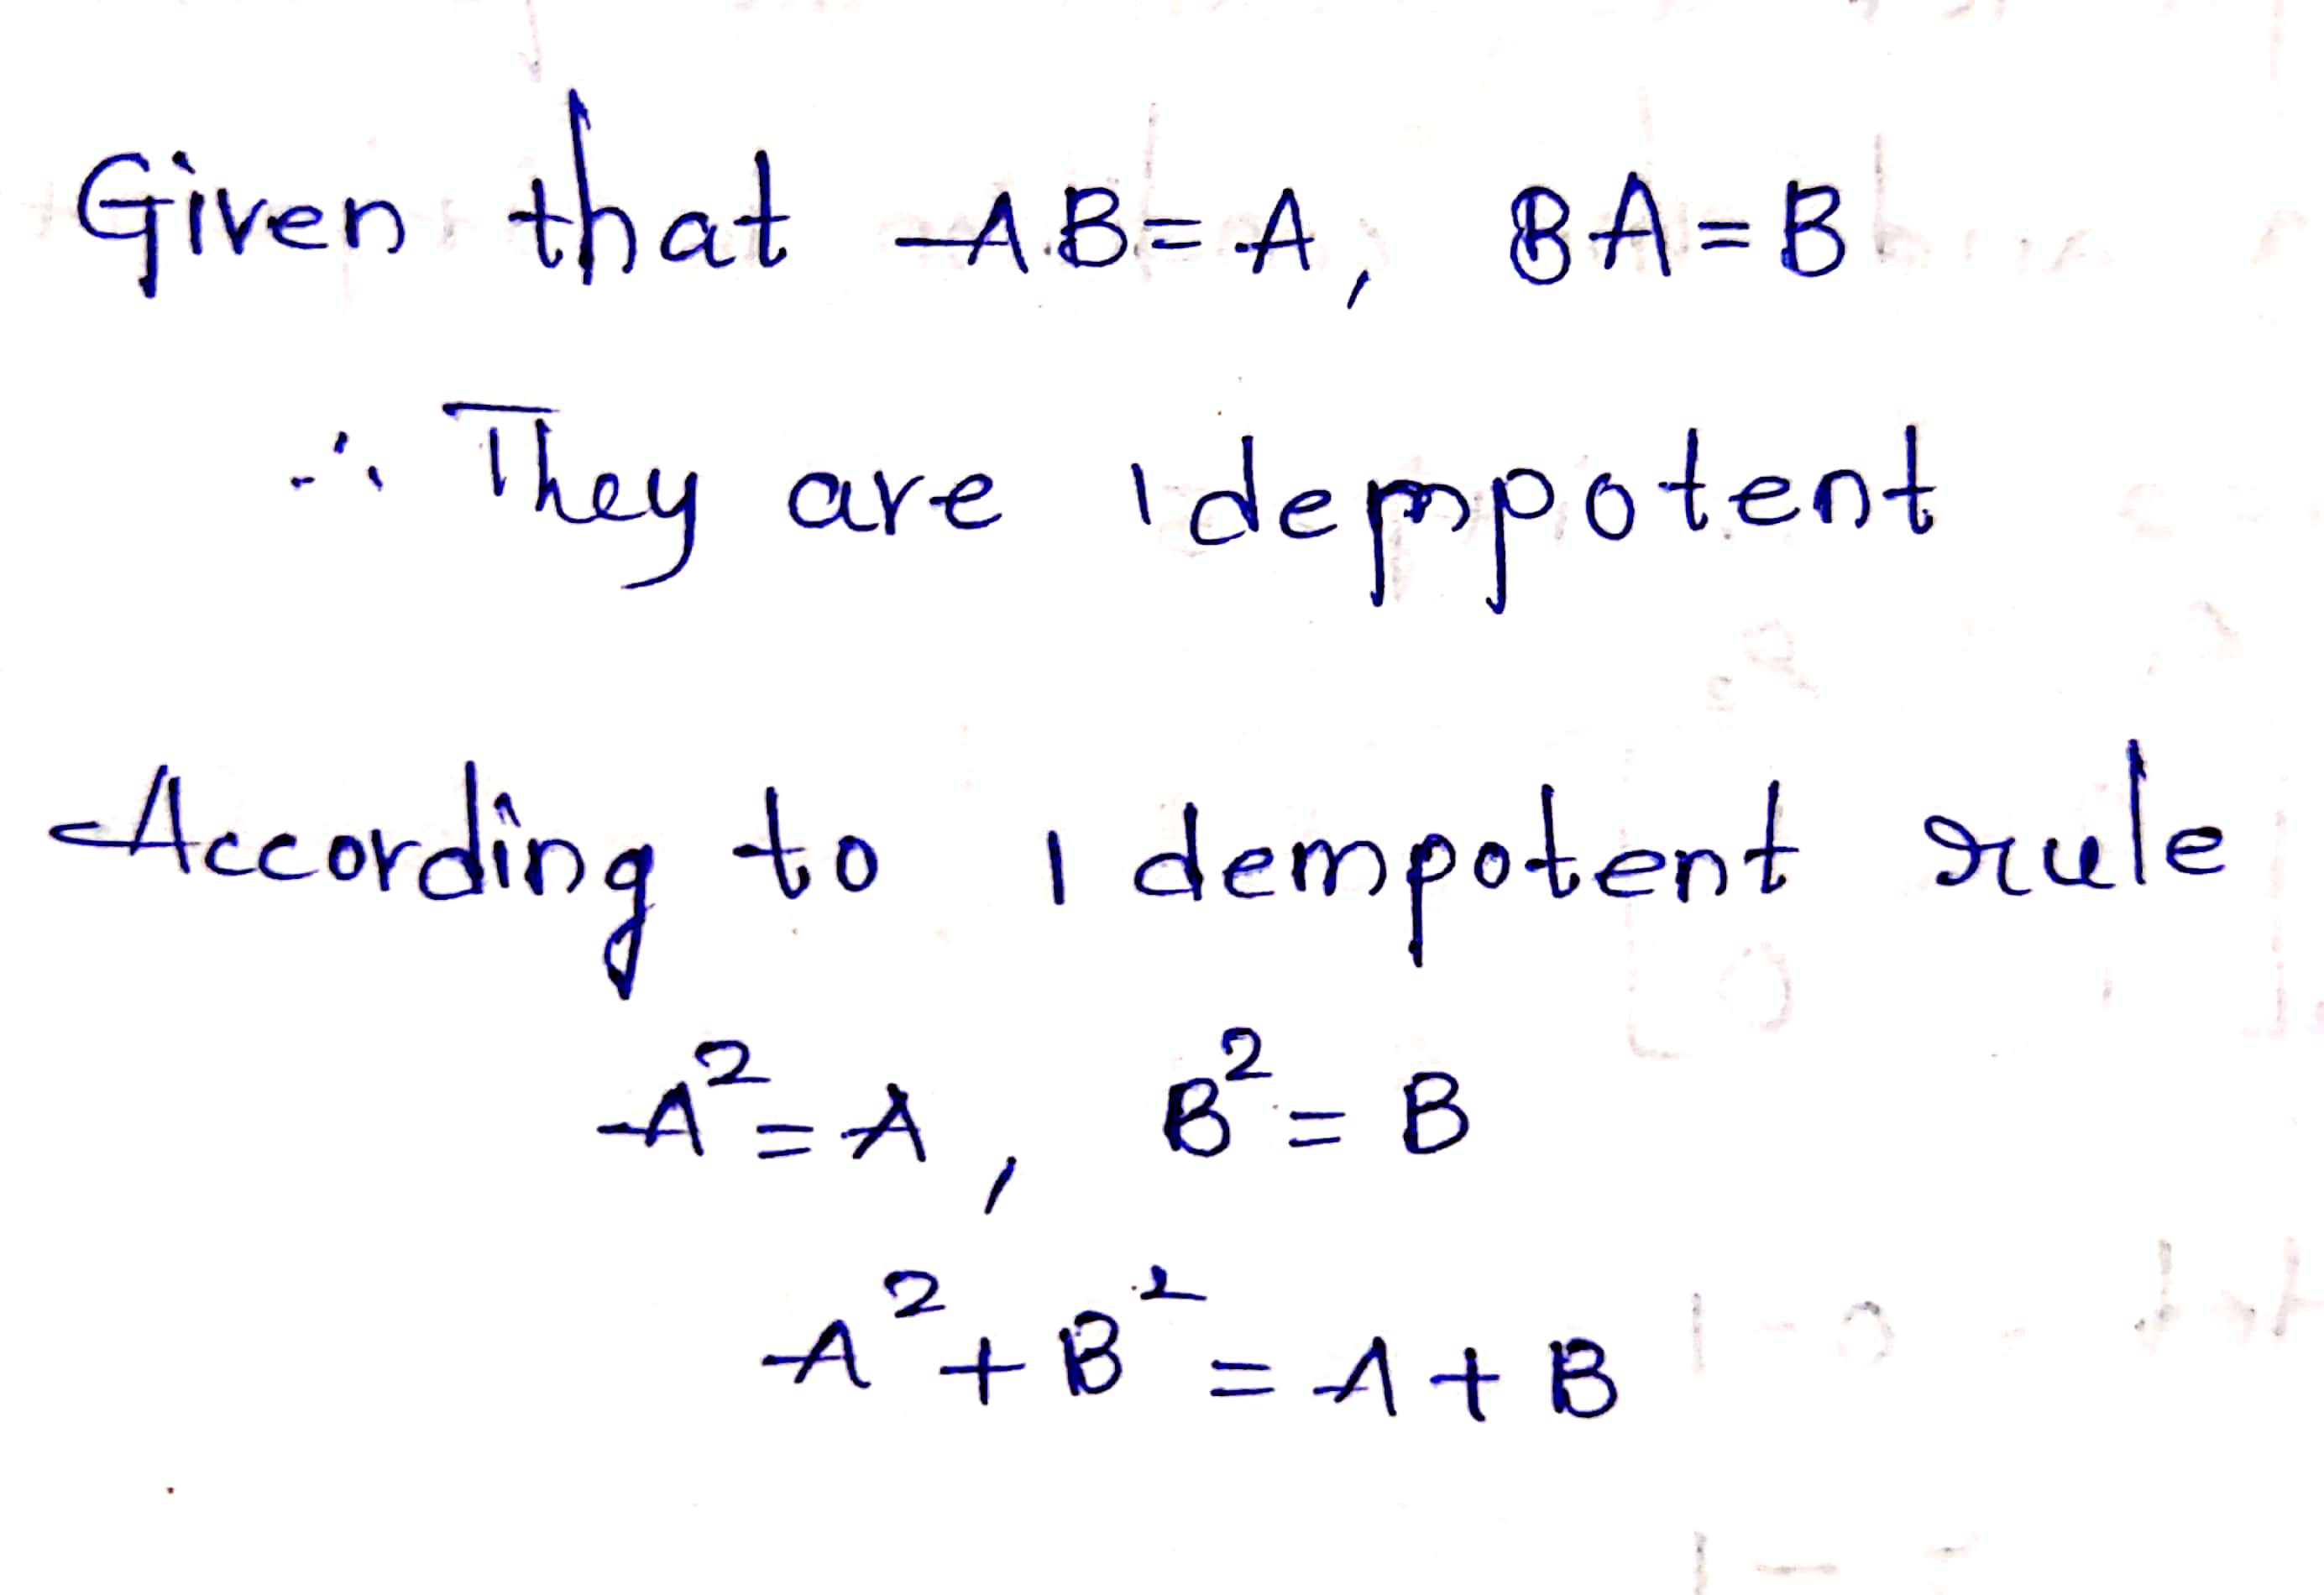 Given that AB = A, BA = B
∴ They are idempotent
According to idempotent rule
A² = A, B² = B
A² + B² = A + B